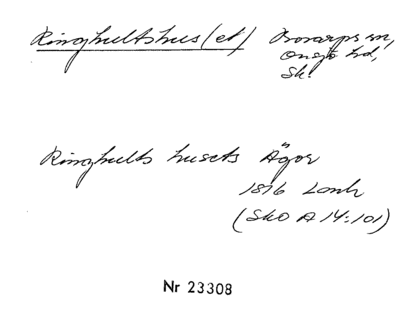 Ringhultshus (et) Bosarps sn,
Onsjö hd,
Sk.
Ringhults husets Ägor
1816 Lanth
(Sko A 14:101)
Nr 23308